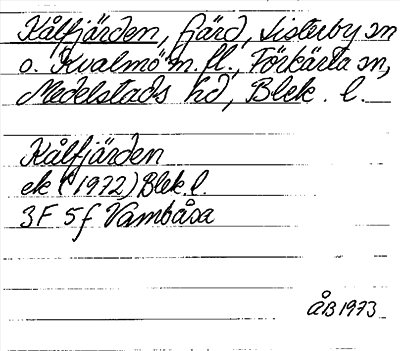 Kålfjärden, fjärd, Listerby sn
o. Kvalmö m. fl., Förkärla sn,
Medelstads hd, Blek. l.
Kålfjärden
ek (1972) Blek. l.
3F 5f Vambåsa
ÅB 1973